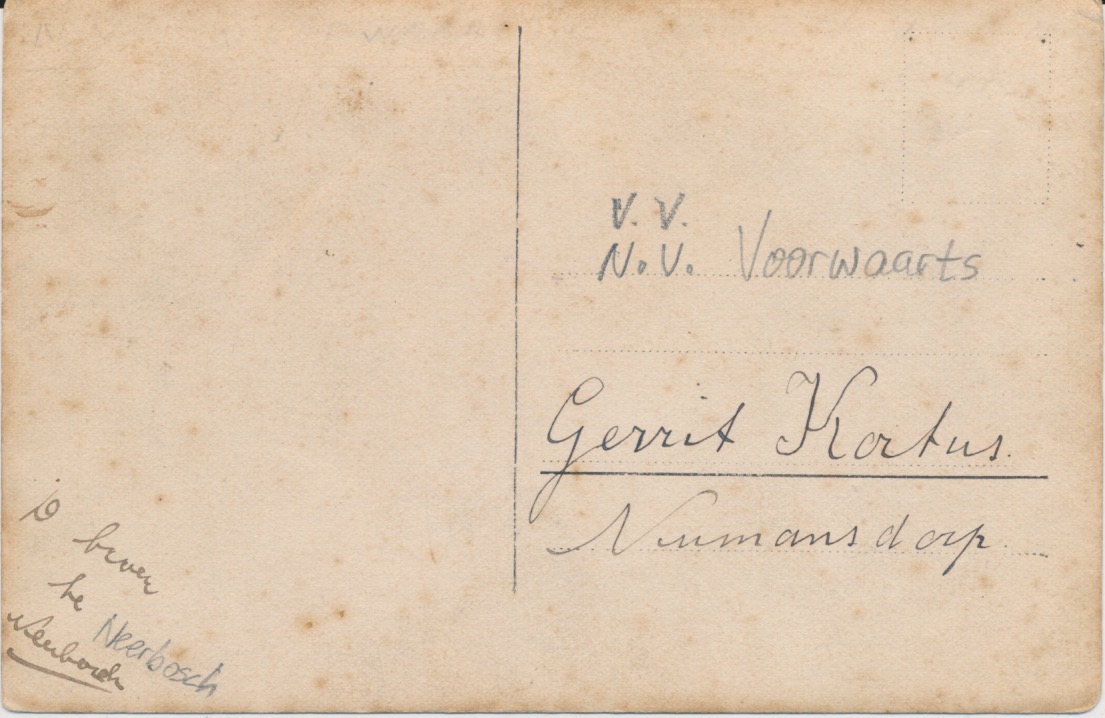 V. V.
N.V. Voorwaarts
Gerrit Kortus.
Numansdorp
te
Neerbosch
Neerbosch